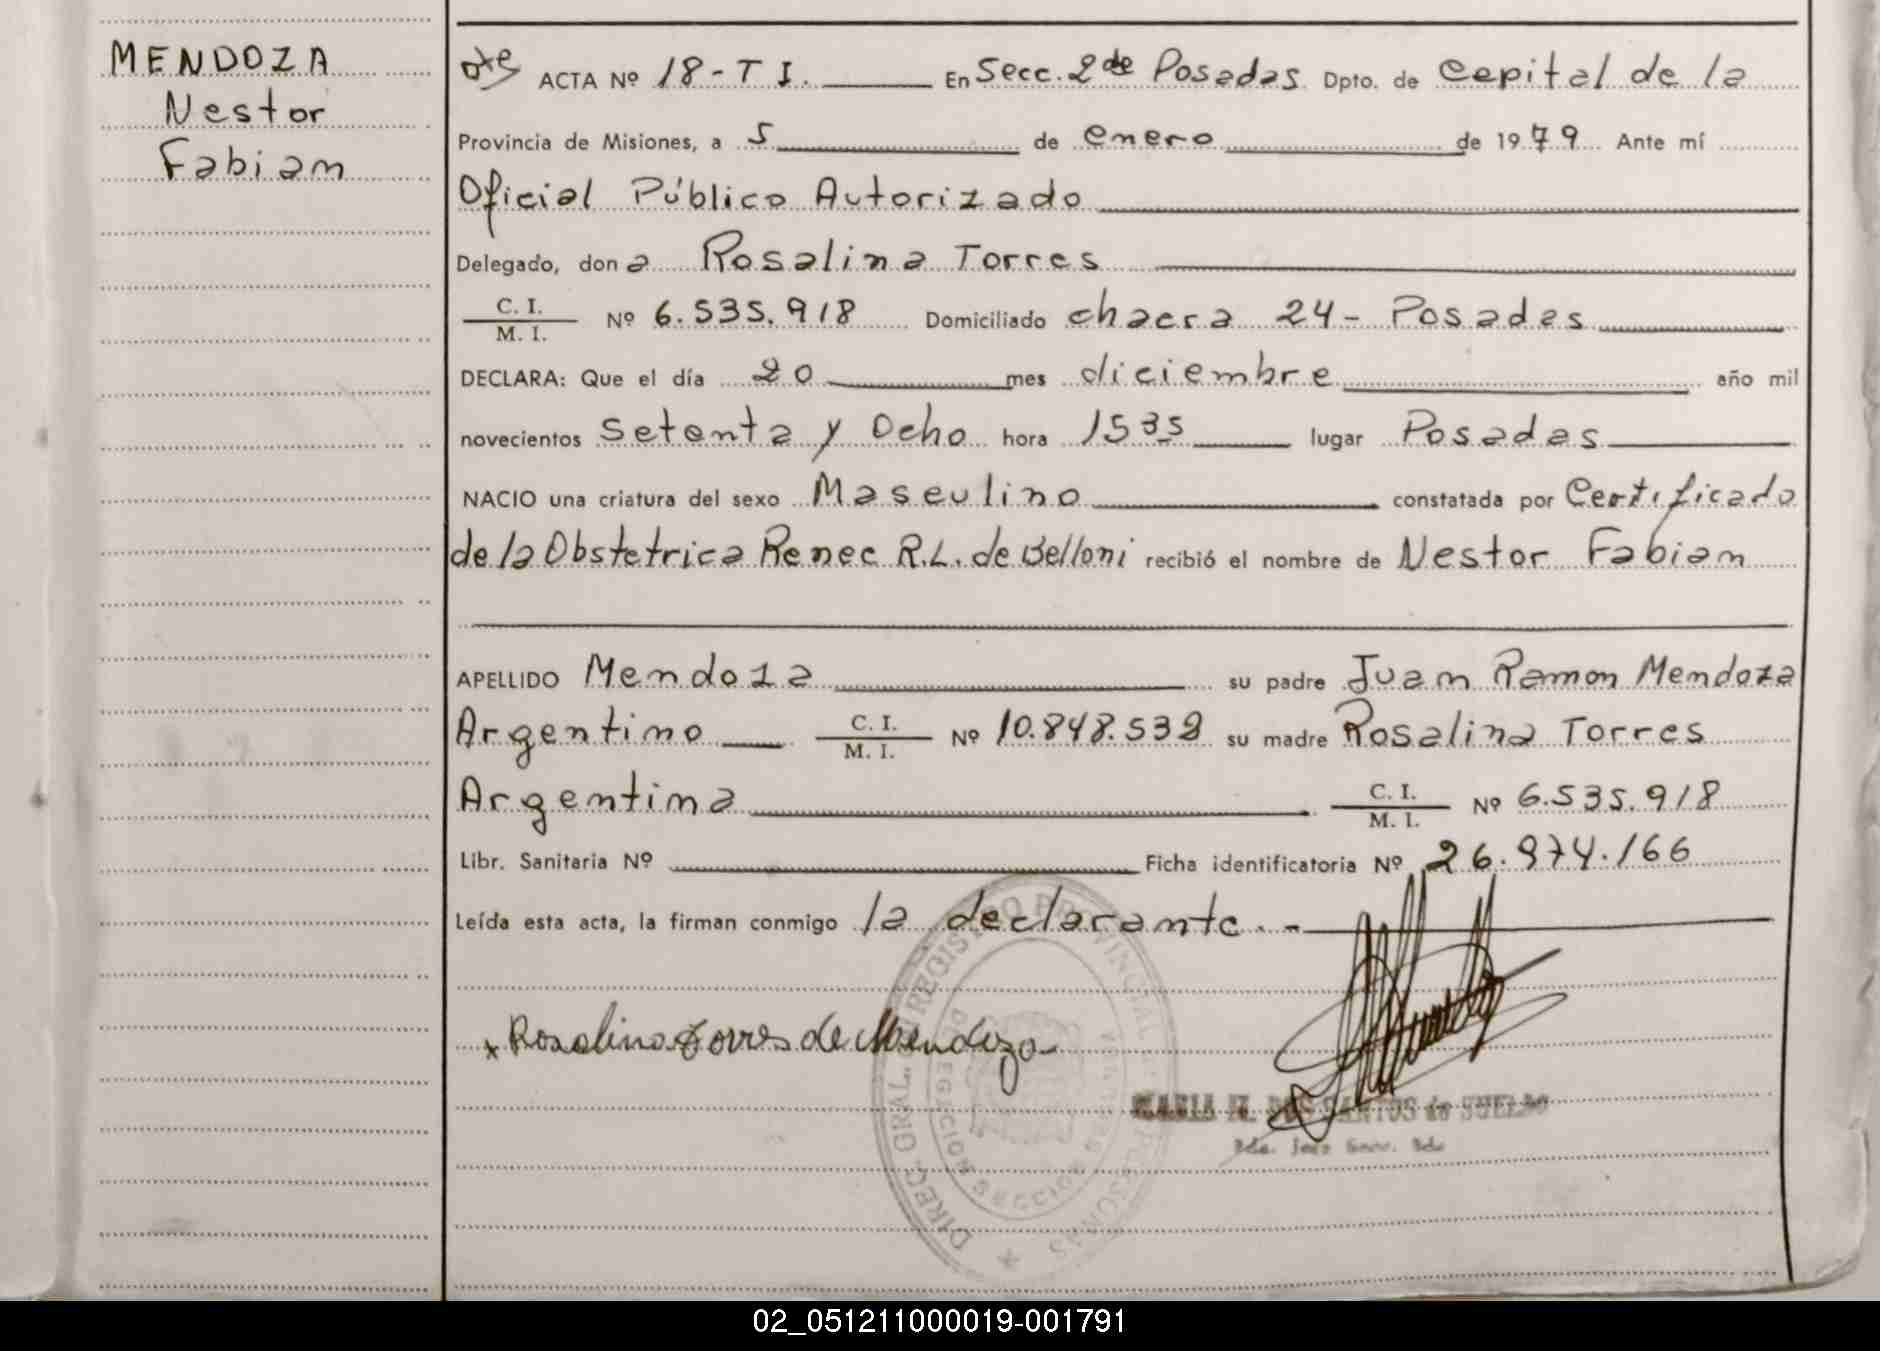 MENDOZA
Nestor
Fabian
ACTA Nº 18-T I. En Secc. 2da Posadas Dpto. de Capital de la
Provincia de Misiones, a 5 de enero de 1979 Ante mí
Oficial Público Autorizado
Delegado, don a Rosalina Torres
C. I.
M. I. Nº 6.535.918 Domiciliado chacra 24- Posadas
DECLARA: Que el día 20 mes diciembre año mil
novecientos Setenta y Ocho hora 1535 lugar Posadas
NACIO una criatura del sexo Masculino constatada por Certificado
de la Obstetrica Renee R.L. de Belloni recibió el nombre de Nestor Fabian
APELLIDO Mendoza su padre Juan Ramon Mendoza
Argentino C. I.
M. I. Nº 10.848.532 su madre Rosalina Torres
Argentina C. I.
M. I. Nº 6.535.918
Libr. Sanitaria Nº Ficha identificatoria Nº 26.974.166
Leída esta acta, la firman conmigo la declarante.-
x Rosalina Torres de Mendoza
DIREC. GRAL. REGISTRO PROVINCIAL PERSONAS
DELEGACION SECCION
DOS SANTOS de SUELDO
02_051211000019-001791